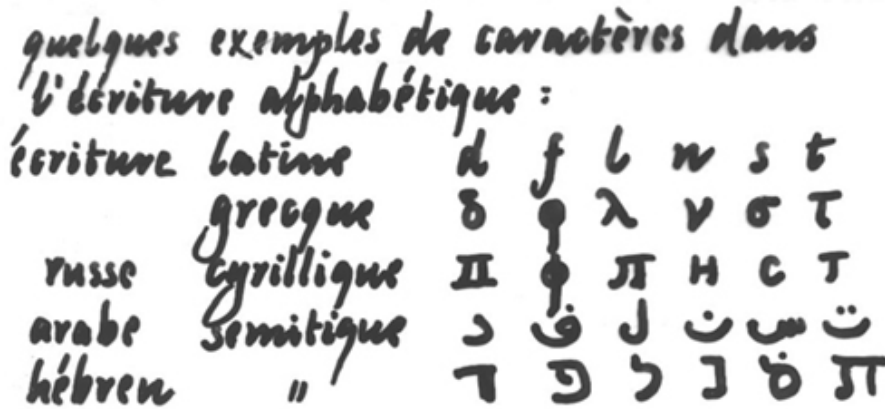 quelques exemples de caractères dans
l'écriture alphabétique :
écriture latine d f l n s t
grecque δ φ λ ν σ τ
russe cyrillique д ф л н с т
arabe semitique د ف ل ن س ت
hébreu " ד פ ל נ ס ת